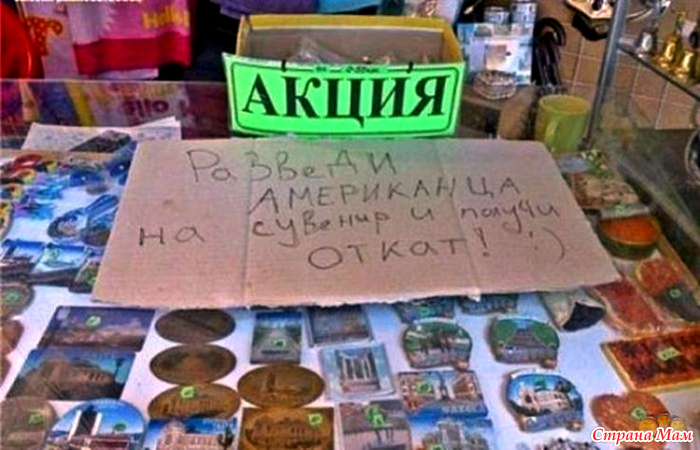 АКЦИЯ
РаЗВеДИ
АМЕРИКАНЦА
на сувенир и получи
ОТКАТ! :)
Страна Мам